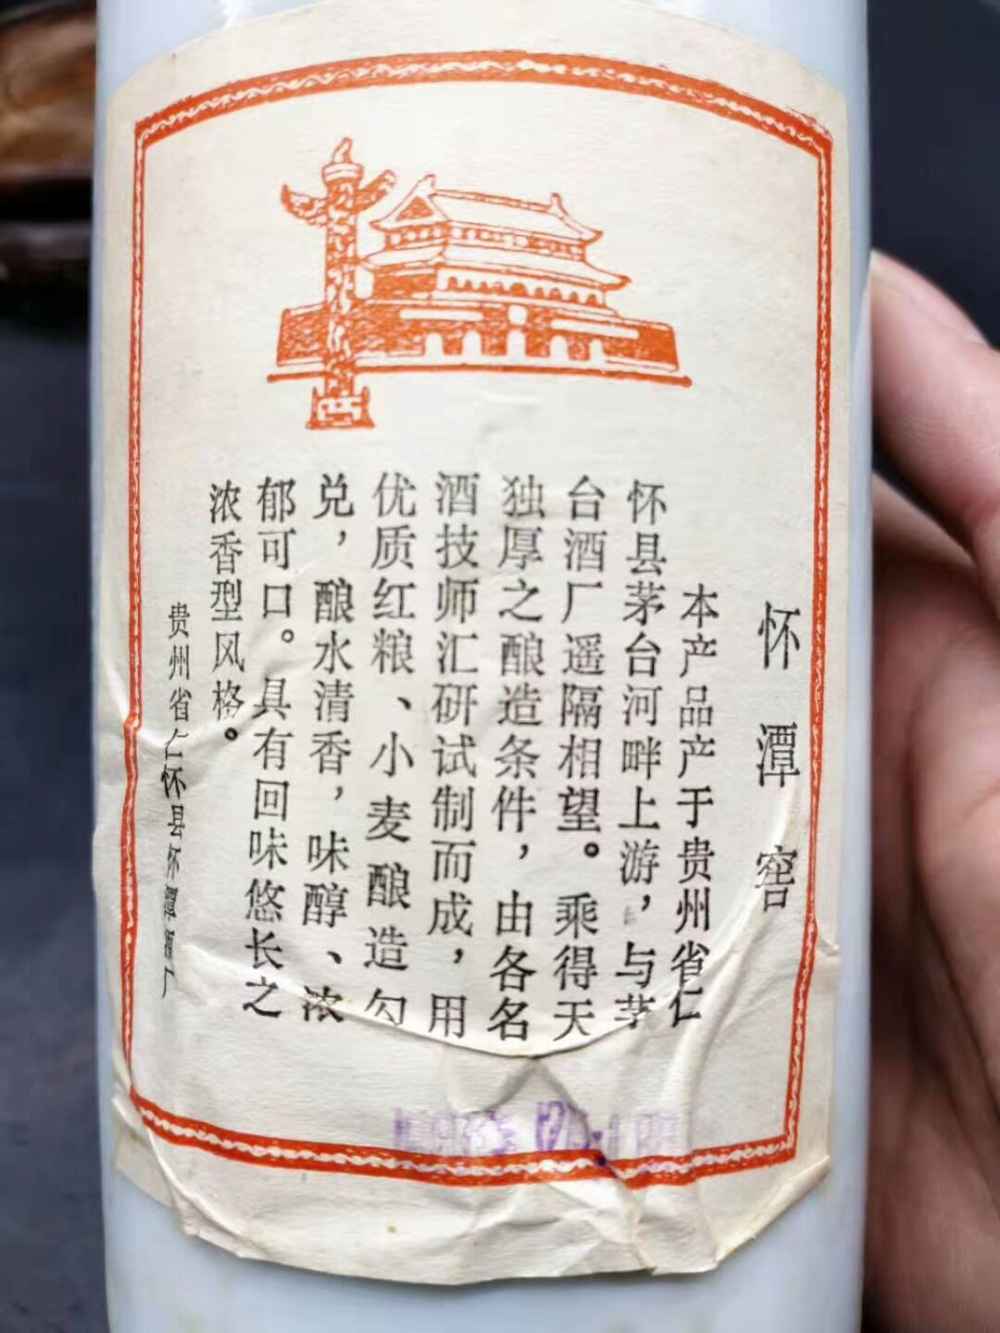 怀潭窖
本产品产于贵州省仁
怀县茅台河畔上游，与茅
台酒厂遥隔相望。乘得天
独厚之酿造条件，由各名
酒技师汇研试制而成，用
优质红粮、小麦酿造勾
兑，酿水清香，味醇、浓
郁可口。具有回味悠长之
浓香型风格。
贵州省仁怀县怀潭酒厂